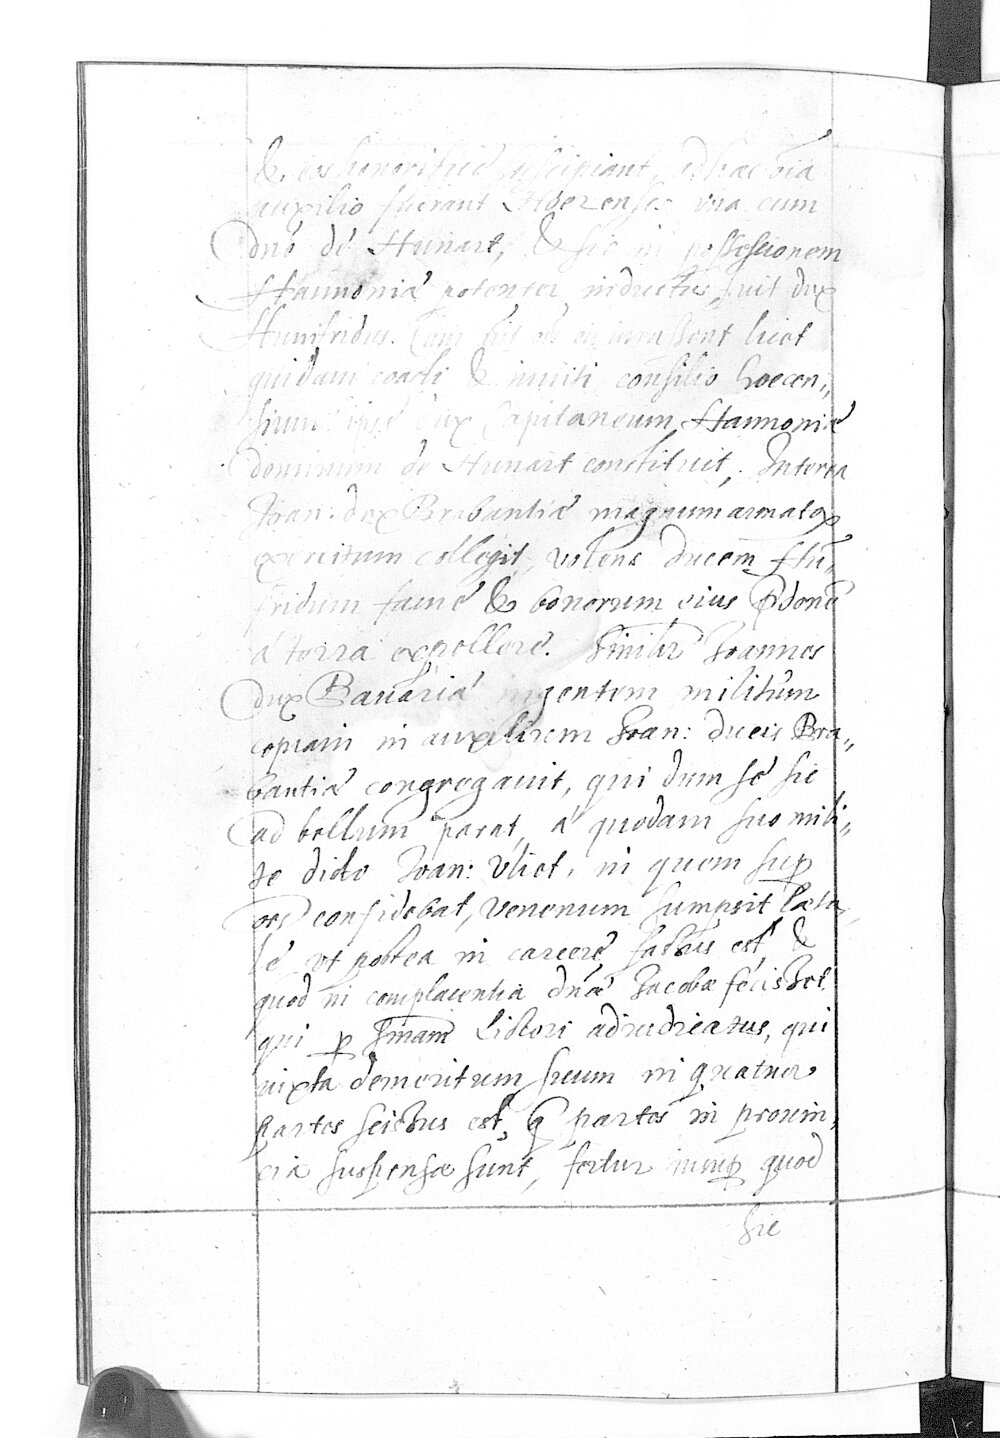 & eos honorificè suscipiant, ad haec õia
auxilio fuerant una cum
dnõ dé Hunart, & sic in possessionem
Hannoniæ potenter inductus fuit dux
Hunfridus. Cum licet
quidam coacti & inuiti consilio hoecen„
sium dux Capitaneum Hannoniæ
dominum de Hunart constituit, Interea
Joan: dux Brabantiæ magnum armatoꝝ
exercitum collegit, volens ducem Hū„
fridum famé & bonorum eius ꝑdoné
á terra expelleré. Similr̃ Joannes
dux Bauariæ ingentem militũm
copiam in auxilium Joan: ducis Bra„
bantiæ congregauit, qui dum sé sic
ad bellum parat, á quodam suo mili„
te dicto Joan: Vliet, in quem suꝑ
oẽs confidebat, venenum sumpsit læta„
lé, vt postea in carceré fassus est, &
quod in complacentia dnæ̃ Jacobæ fecisset,
qui ꝑ sñiam Lictori adiudicatus, qui
iuxta demeritum suum in quatuor
partes scissus est, q̃ partes in prouin„
ciæ suspensæ sunt, fertur insuꝑ quod
sic